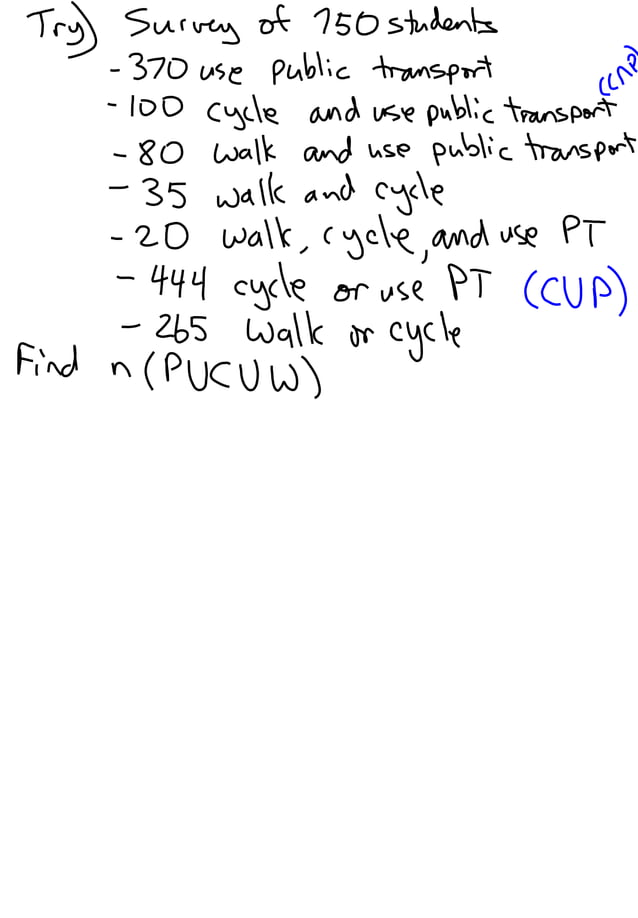 Try) Survey of 750 students
- 370 use public transport
- 100 cycle and use public transport (C∩P)
- 80 walk and use public transport
- 35 walk and cycle
- 20 walk, cycle, and use PT
- 444 cycle or use PT (CUP)
- 265 walk or cycle
Find n(PUCUW)